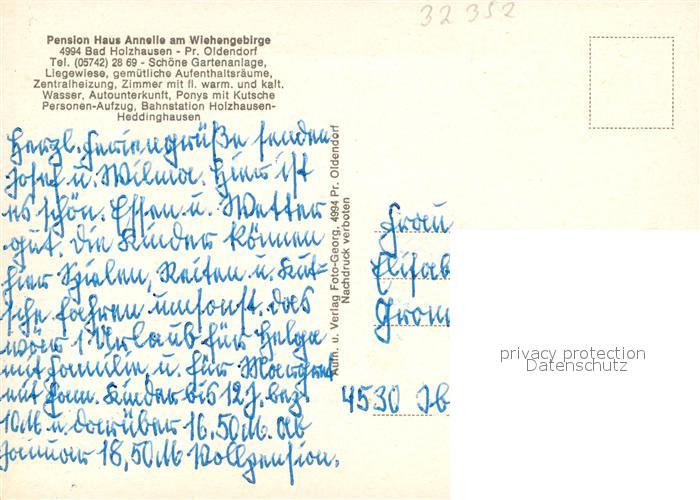 32 352
Pension Haus Annelie am Wiehengebirge
4994 Bad Holzhausen - Pr. Oldendorf
Tel. (05742) 28 69 - Schöne Gartenanlage,
Liegewiese, gemütliche Aufenthaltsräume,
Zentralheizung, Zimmer mit fl. warm. und kalt.
Wasser, Autounterkunft, Ponys mit Kutsche
Personen-Aufzug, Bahnstation Holzhausen-
Heddinghausen
Herzl. Feriengrüße senden
Josef u. Wilma. Hier ist
es schön. Essen u. Wetter
gut. Die Kinder können
hier Spielen, Reiten u. Kut-
sche fahren umsonst. Das
wär 1 Urlaub für Helga
mit Familie u. für Margret
mit Fam. Kinder bis 12 J. bez.
10 M u. darüber 16,50 M. Ab
Januar 18,50 M Vollpension.
Aufn. u. Verlag Foto-Georg, 4994 Pr. Oldendorf
Nachdruck verboten
Frau
Elisab
Grom
4530 Ib
privacy protection
Datenschutz